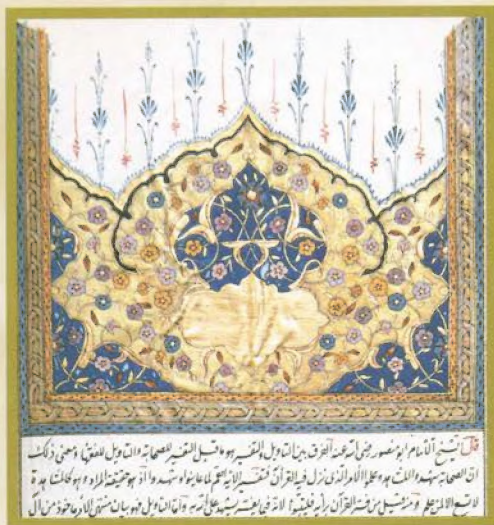 قال الشيخ الامام ابو منصور رضى الله عنه الفرق بين التاويل والتفسير هو ما قيل التفسير للصحابة والتاويل للفقهاء ومعنى ذلك
ان الصحابة شهدوا المشاهد وعلموا الأمر الذى نزل فيه القرآن فتفسير الآية اهم لما عاينوا وشهدوا اذ هو حقيقة المراد وهو كالمشاهدة
لا تسمح الا لمن علم ومنه قيل من فسر القرآن برأيه فليتبوأ لانه فيما يفسر يشهد على الله به واما التاويل فهو بيان منتهى الأمر مأخوذ من آل